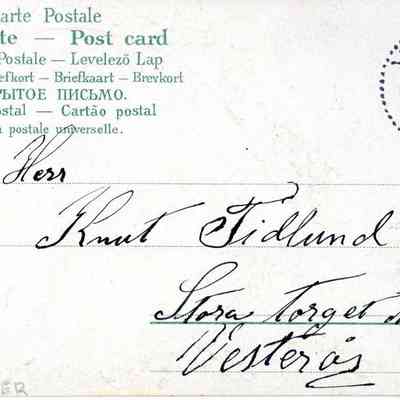 arte Postale
te — Post card
Postale — Levelező Lap
efkort — Briefkaart — Brevkort
РЫТОЕ ПИСЬМО.
ostal — Cartão postal
n postale universelle.
Herr
Knut Fidlund
Stora torget
Vesterås
ER